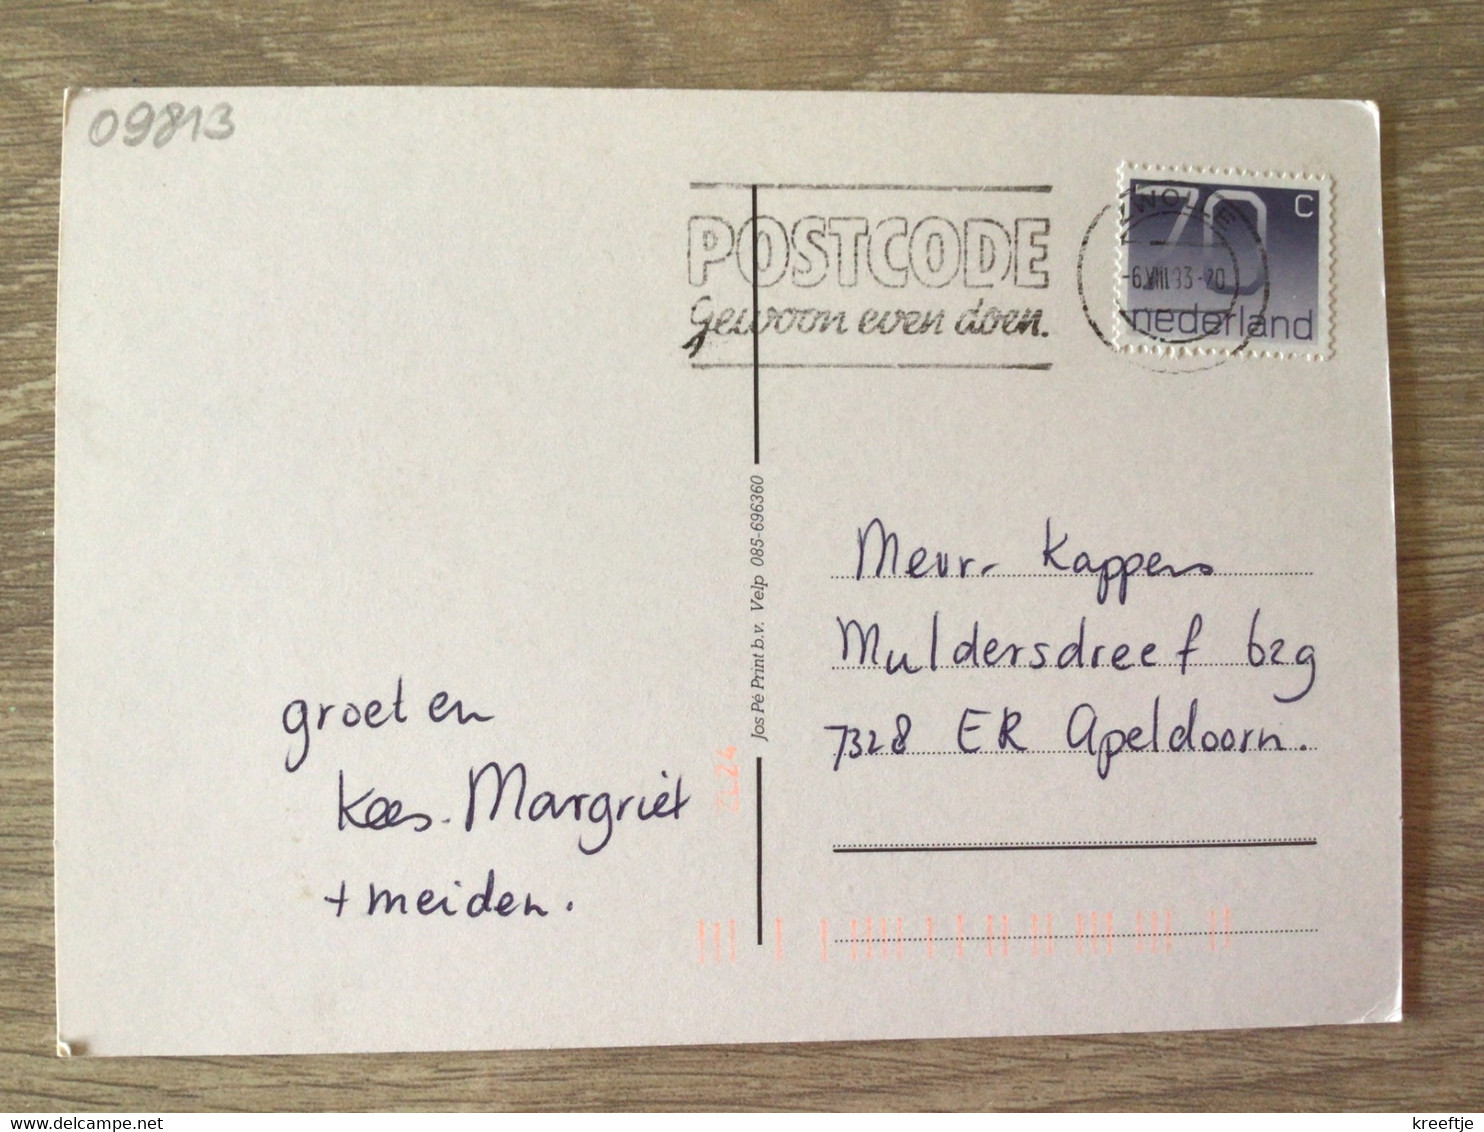 09813
POSTCODE
Gewoon even doen.
ZWOLLE
-6.VIII.93-20
70 C
nederland
Jos Pé Print b.v. Velp 085-696360
Mevr. Kappers
Muldersdreef 629
7328 ER Apeldoorn.
groeten
Kees. Margriet
+ meiden.
kreeftje